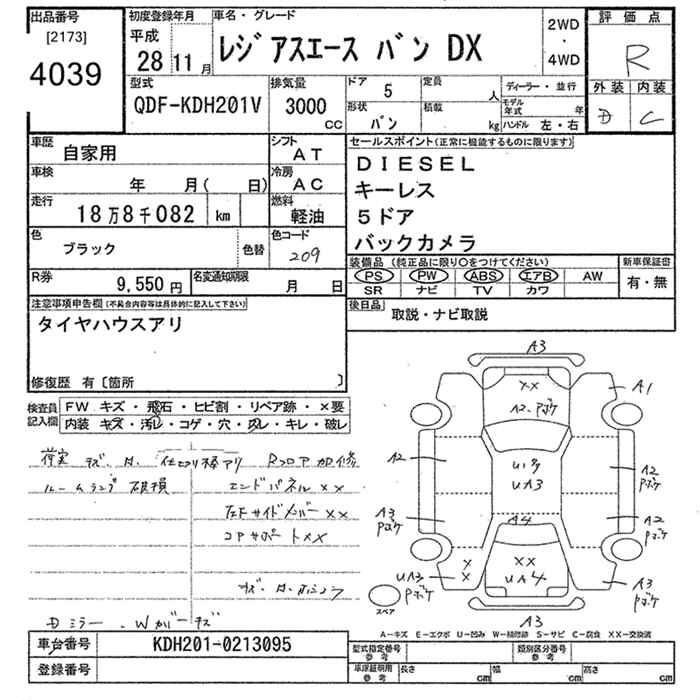 出品番号
[2173]
4039
初度登録年月
平成
28 11月
車名・グレード
レジアスエース バン DX
2WD
・
4WD
評価点
R
型式
QDF-KDH201V
排気量
3000
CC
ドア 5
定員 人
形状 バン
積載 kg
ディーラー・並行
モデル年式 年
ハンドル 左・右
外装 内装
D C
車歴 自家用
シフト AT
車検 年 月( 日)
冷房 AC
走行 18万8千082 km
燃料 軽油
色 ブラック 色替
色コード 209
R券 9,550円
名変通知期限 月 日
セールスポイント(正常に機能するものに限ります)
DIESEL
キーレス
5ドア
バックカメラ
装備品(純正品に限り○をつけてください)
新車保証書
PS PW ABS エアB AW
SR ナビ TV カワ
有・無
後日品 取説・ナビ取説
注意事項申告欄(不具合内容等は具体的に記入して下さい)
タイヤハウスアリ
修復歴 有〔箇所 〕
検査員記入欄
FW キズ・飛石・ヒビ割・リペア跡・×要
内装 キズ・汚レ・コゲ・穴・スレ・キレ・破レ
荷室 キズ・
Rフロア加修
ルームランプ 破損
エンドパネル××
コアサポート××
Dミラー
A3
××
A1
A2
A2
A2
A3
A4
××
UA4
UA3
A3
A3
スペア
A-キズ E-エクボ U-凹み W-補修跡 S-サビ C-腐食 ××-交換済
車台番号 KDH201-0213095
登録番号
型式指定番号 参考
類別区分番号 参考
車庫証明用参考 長さ cm 幅 cm 高さ cm